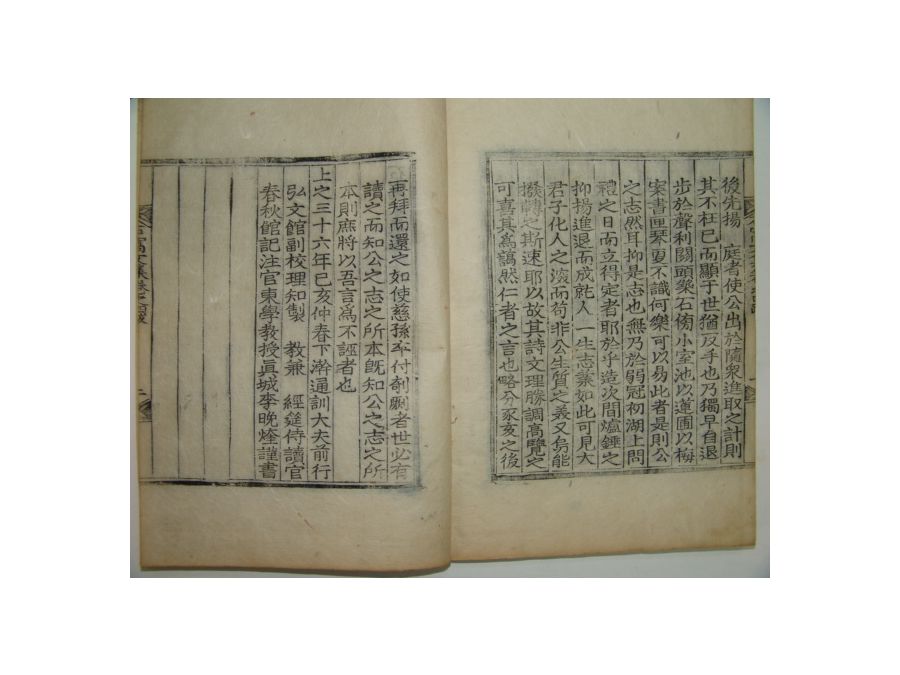 後先揚 庭者使公出於隨衆進取之計則
其不枉已而顯于世猶反手也乃獨早自退
步於聲利關頭藥石傍小室池以蓮圃以梅
案書匣琴夏不識何樂可以易此者是則公
之志然耳抑是志也無乃於弱冠初湖上問
禮之日而立得定者耶於乎造次間爐錘之
抑揚進退而成就人一生志業如此可見大
君子化人之深而苟非公生質之美又烏能
撥轉之斯速耶以故其詩文理勝調高覽之
可喜其爲藹然仁者之言也略分豕亥之後
再拜而還之如使慈孫卒付剞劂者世必有
讀之而知公之志之所本旣知公之志之所
本則庶將以吾言爲不誣者也
上之三十六年己亥仲春下澣通訓大夫前行
弘文館副校理知製 教兼 經筵侍讀官
春秋館記注官東學敎授眞城李晚煃謹書